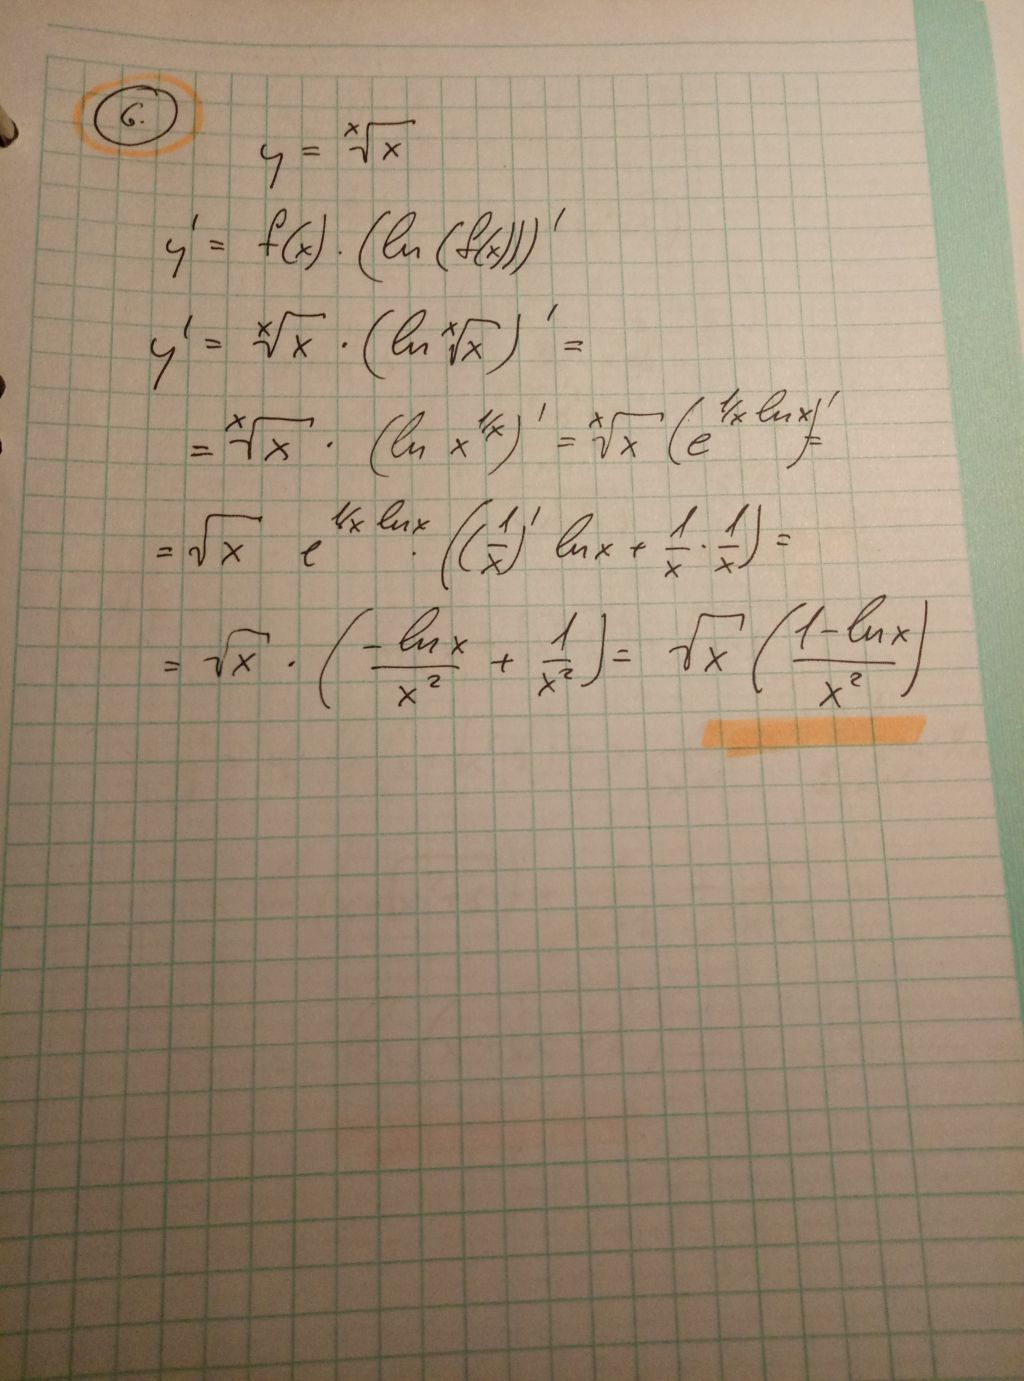 6.
y = ˣ√x
y' = f(x) · (ln (f(x)))'
y' = ˣ√x · (ln ˣ√x)' =
= ˣ√x · (ln x^{1/x})' = ˣ√x (e^{1/x ln x})' =
= √x e^{1/x ln x} · ((1/x)' ln x + 1/x · 1/x) =
= √x · (-ln x/x² + 1/x²) = √x (1 - ln x/x²)